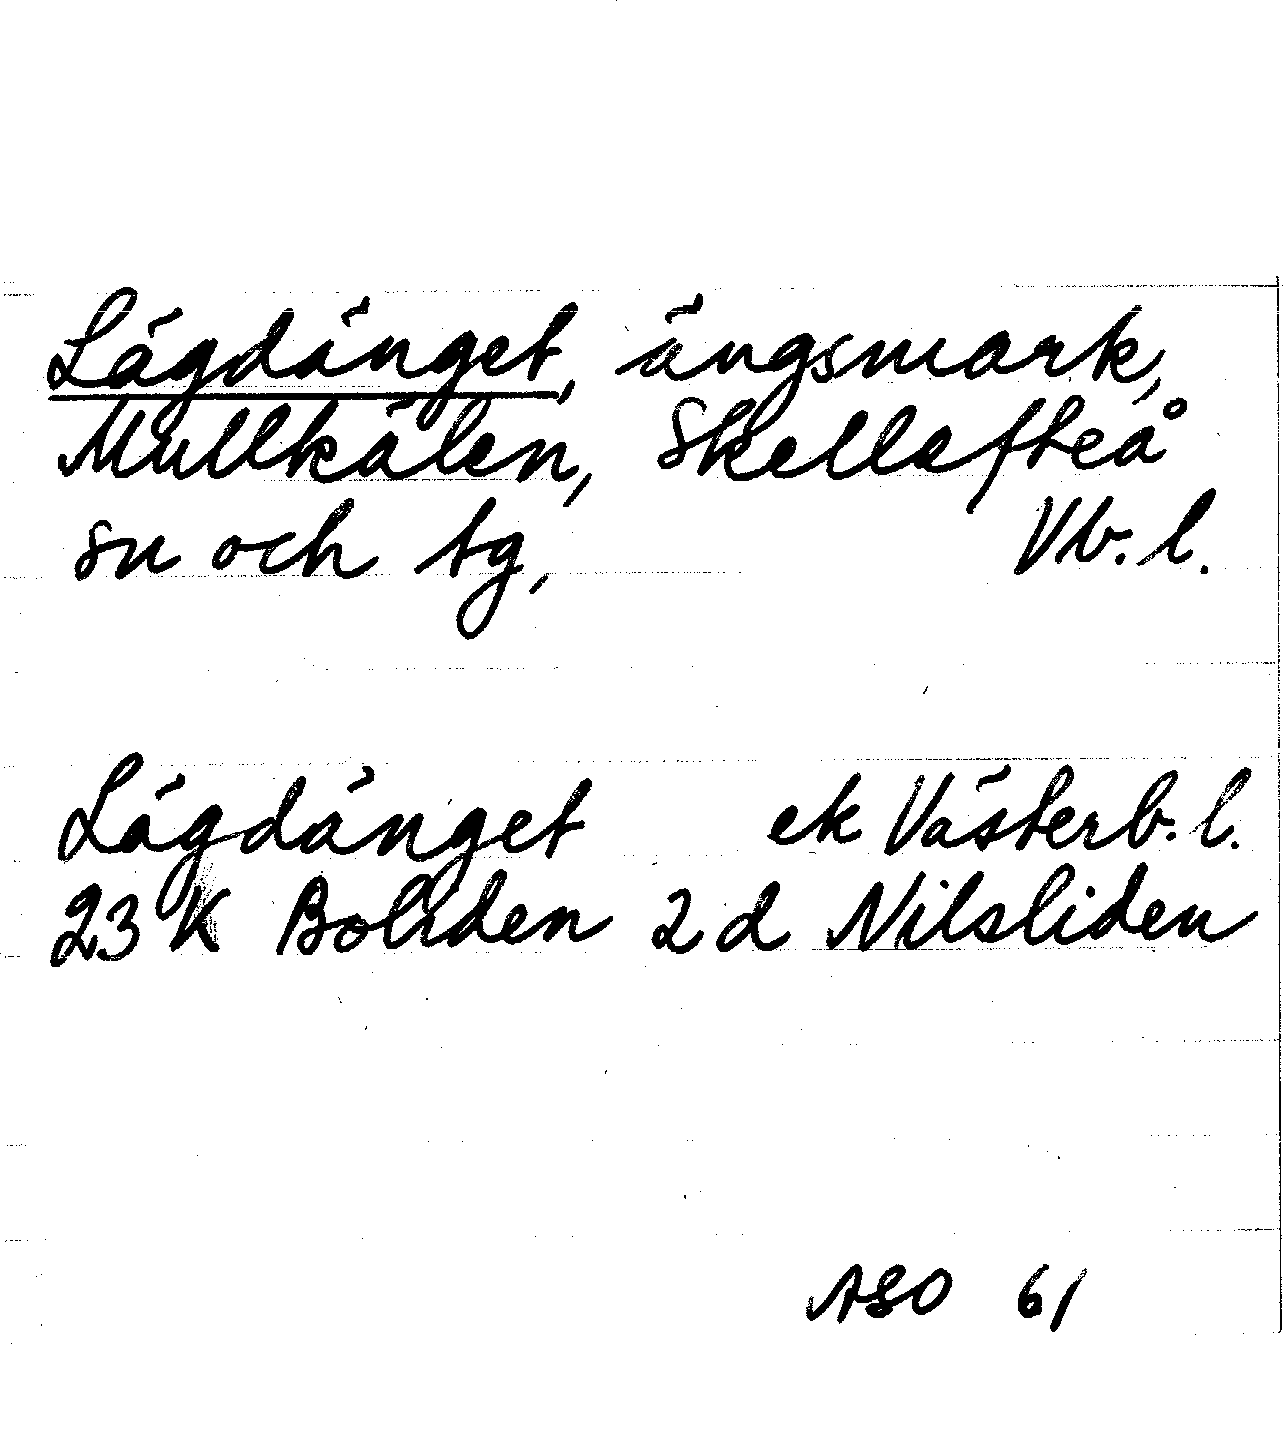 Lägdänget, ängsmark,
Mullkälen, Skellefteå
sn och tg, Vb. l.
Lägdänget ek Västerb. l.
23 K Boliden 2 d Nilsliden
ASO 61